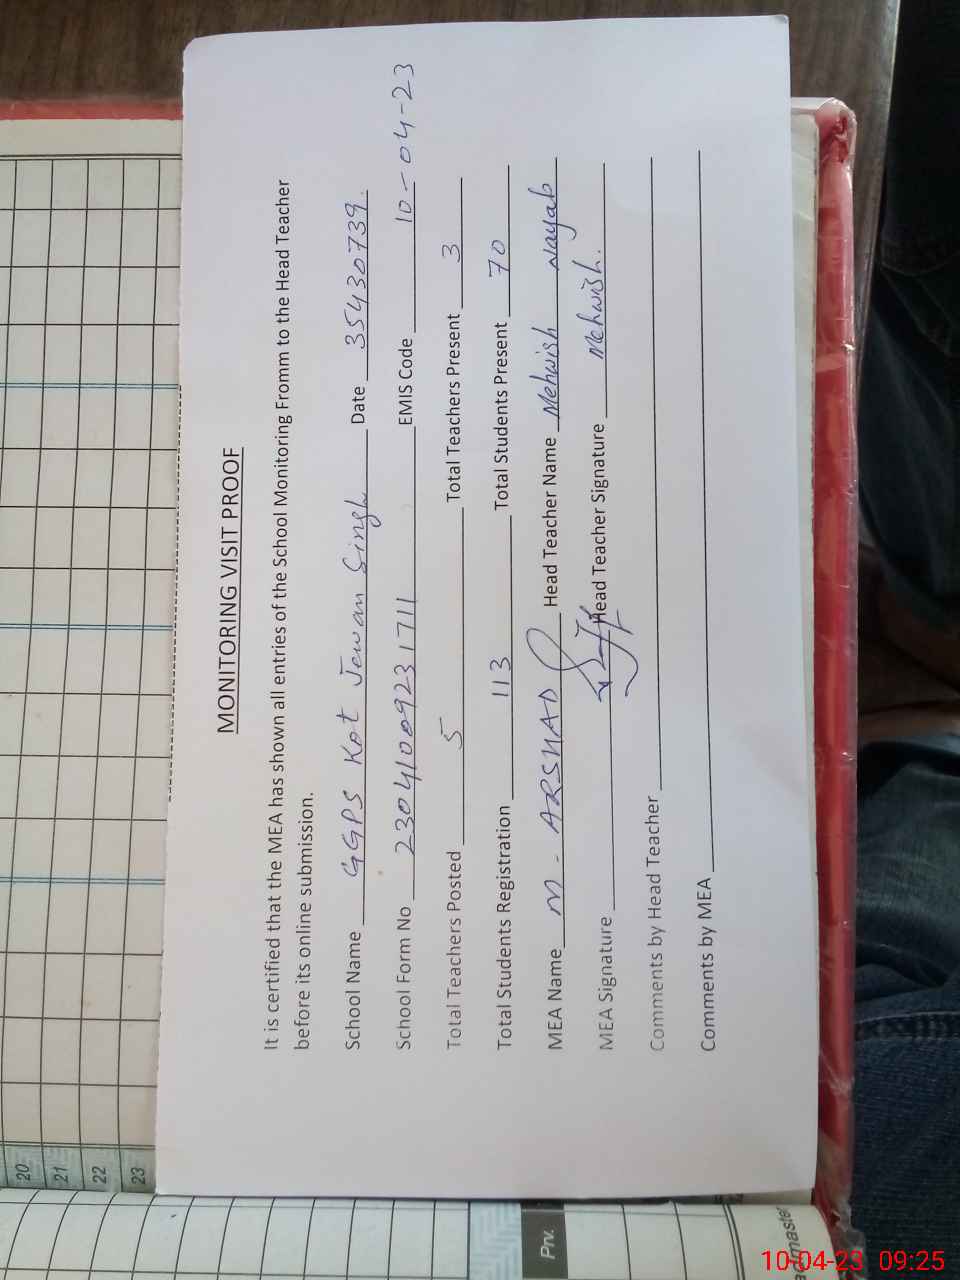 MONITORING VISIT PROOF
It is certified that the MEA has shown all entries of the School Monitoring Fromm to the Head Teacher
before its online submission.
School Name GGPS Kot Jewan Singh Date 35430739.
School Form No 23041009231711 EMIS Code 10-04-23
Total Teachers Posted 5 Total Teachers Present 3
Total Students Registration 113 Total Students Present 70
MEA Name M. ARSHAD Head Teacher Name Mehwish Nayab
MEA Signature Head Teacher Signature Mehwish.
Comments by Head Teacher
Comments by MEA
20
21
22
23
Prv.
10-04-23 09:25